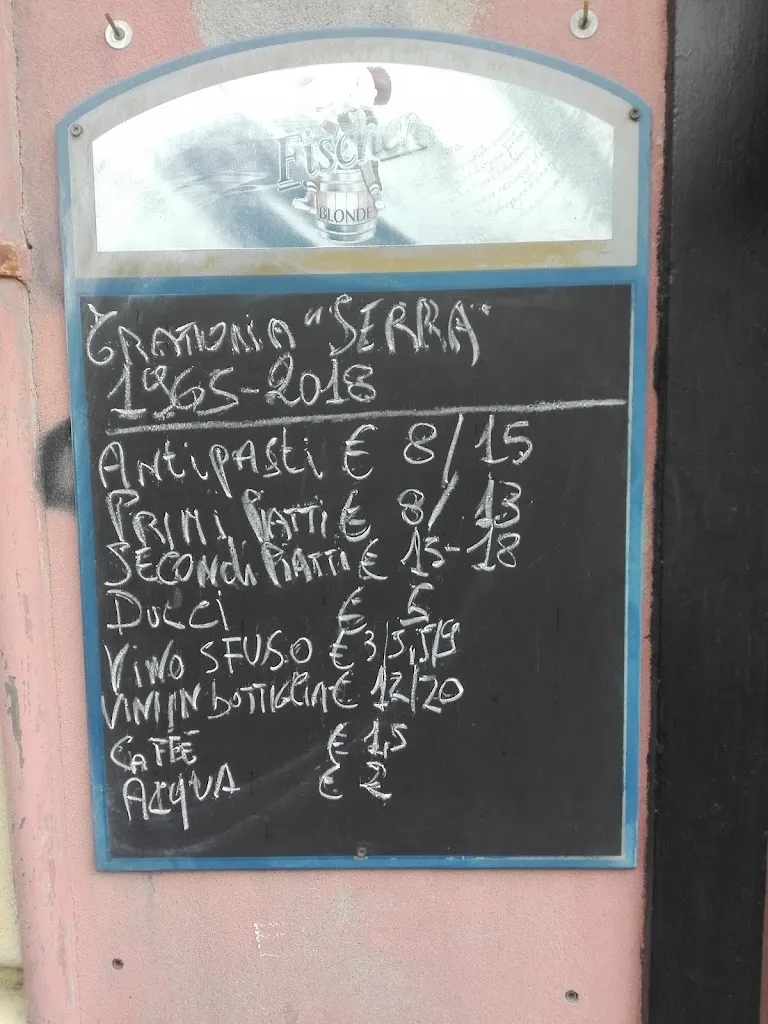 Fischer
BLONDE
TRATTORIA "SERRA"
1965-2018
Antipasti € 8/15
PRIMI PIATTI € 8/13
SECONDi PIATTI € 15-18
DOLCI € 5
VINO SFUSO € 3/5,5/9
VINI IN BOTTIGLIA € 12/20
CAFFÈ € 1,5
ACQUA € 2